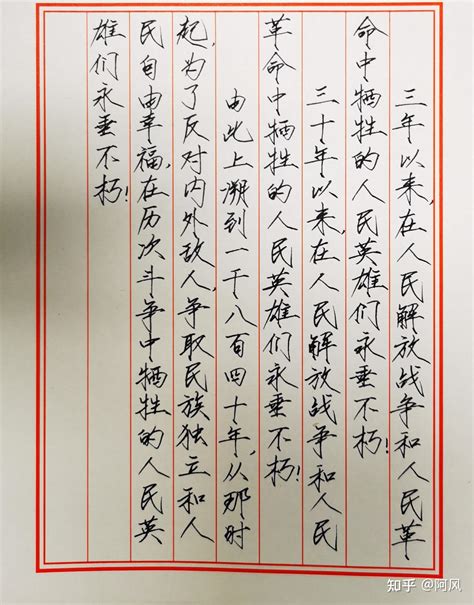 三年以来,在人民解放战争和人民革
命中牺牲的人民英雄们永垂不朽!
三十年以来,在人民解放战争和人民
革命中牺牲的人民英雄们永垂不朽!
由此上溯到一千八百四十年,从那时
起,为了反对内外敌人,争取民族独立和人
民自由幸福,在历次斗争中牺牲的人民英
雄们永垂不朽!
知乎 @阿风